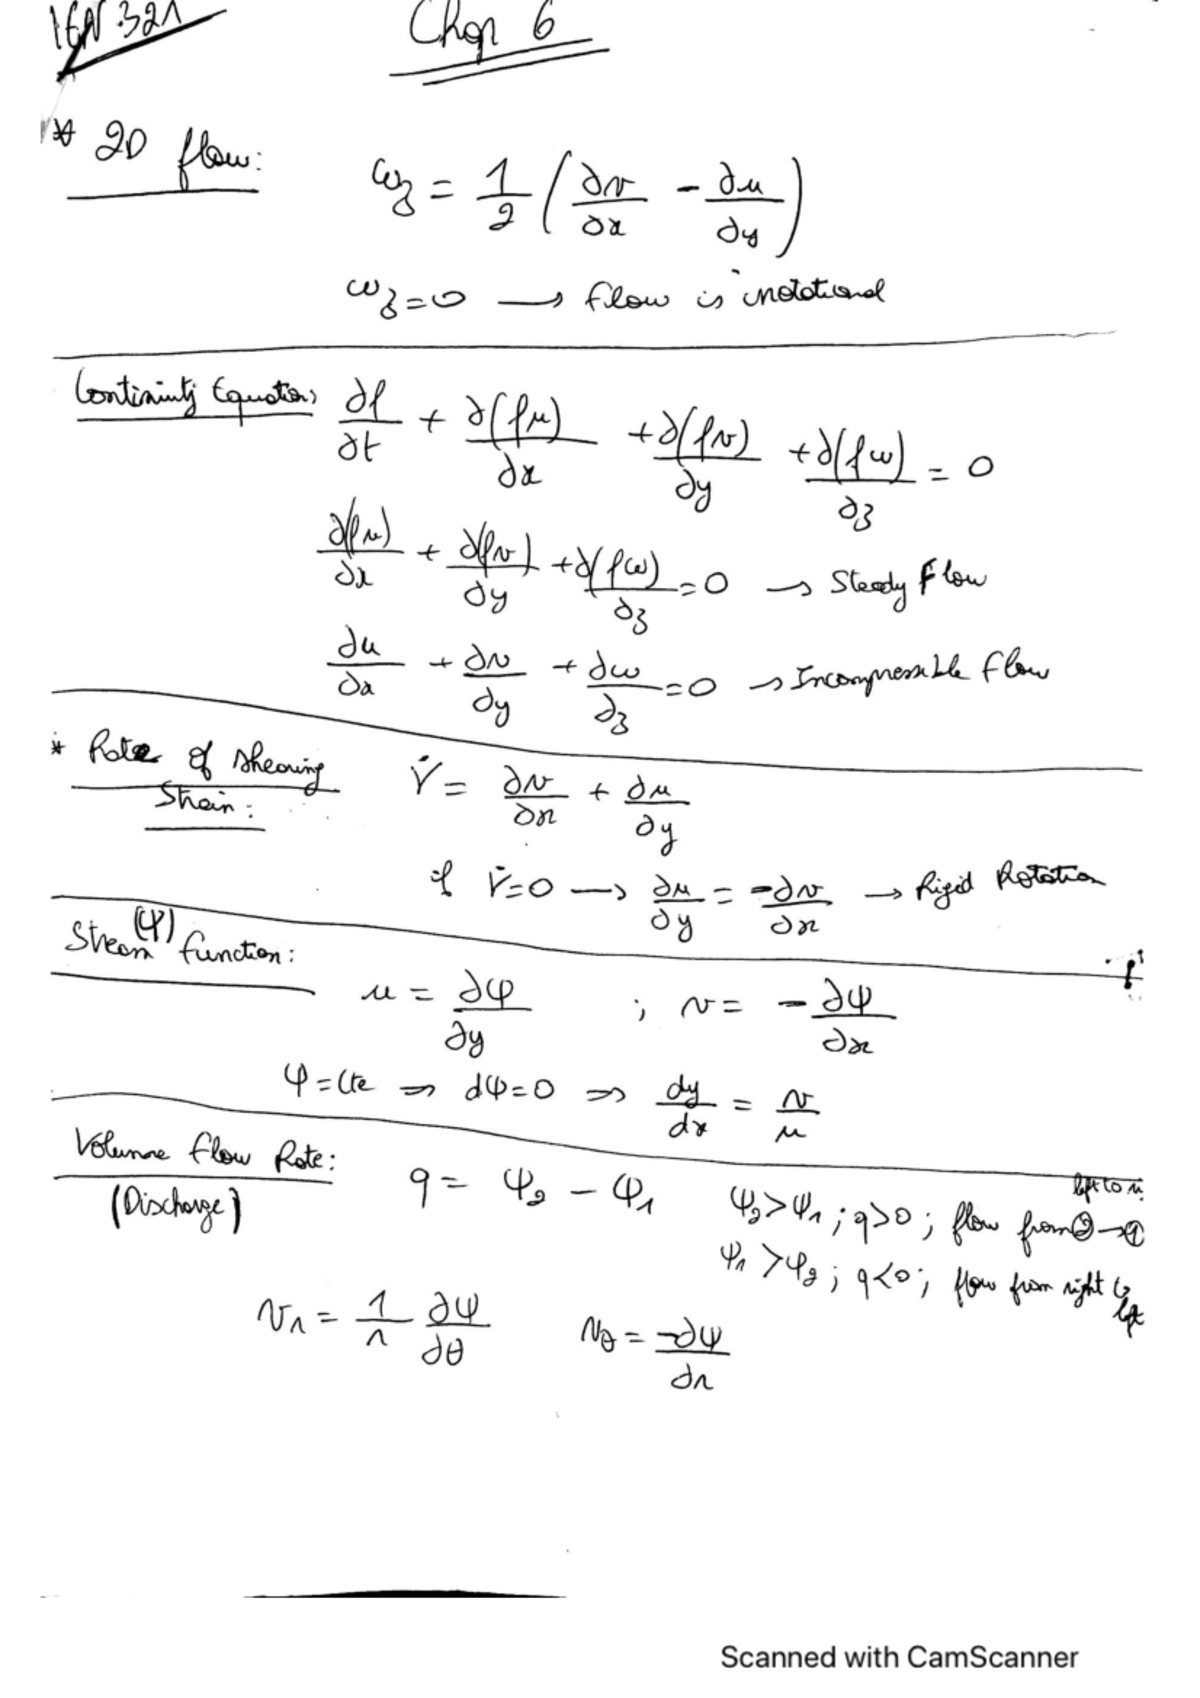 IGN 321
Chap 6
* 2D flow: ω_z = 1/2 (∂v/∂x - ∂u/∂y)
ω_z = 0 → flow is irrotational
Continuity Equation: ∂ρ/∂t + ∂(ρu)/∂x + ∂(ρv)/∂y + ∂(ρω)/∂z = 0
∂(ρu)/∂x + ∂(ρv)/∂y + ∂(ρω)/∂z = 0 → Steady Flow
∂u/∂x + ∂v/∂y + ∂ω/∂z = 0 → Incompressible flow
* Rate of shearing
Strain: γ̇ = ∂v/∂x + ∂u/∂y
if γ̇=0 → ∂u/∂y = -∂v/∂x → Rigid Rotation
Stream (ψ) function:
u = ∂ψ/∂y ; v = -∂ψ/∂x
ψ = Cte ⇒ dψ=0 ⇒ dy/dx = v/u
Volume flow Rate:
(Discharge)
q = ψ₂ - ψ₁
left to
ψ₂ > ψ₁ ; q>0 ; flow from ② → ①
ψ₁ > ψ₂ ; q<0 ; flow from right to
left
v_r = 1/r ∂ψ/∂θ v_θ = -∂ψ/∂r
Scanned with CamScanner